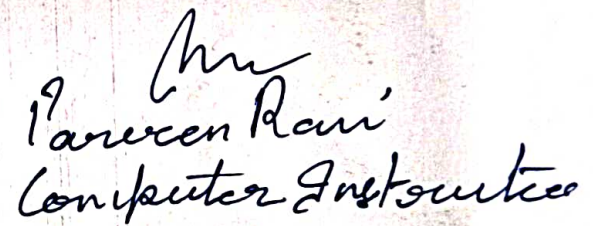 Parveen Rani
Computer Instructor